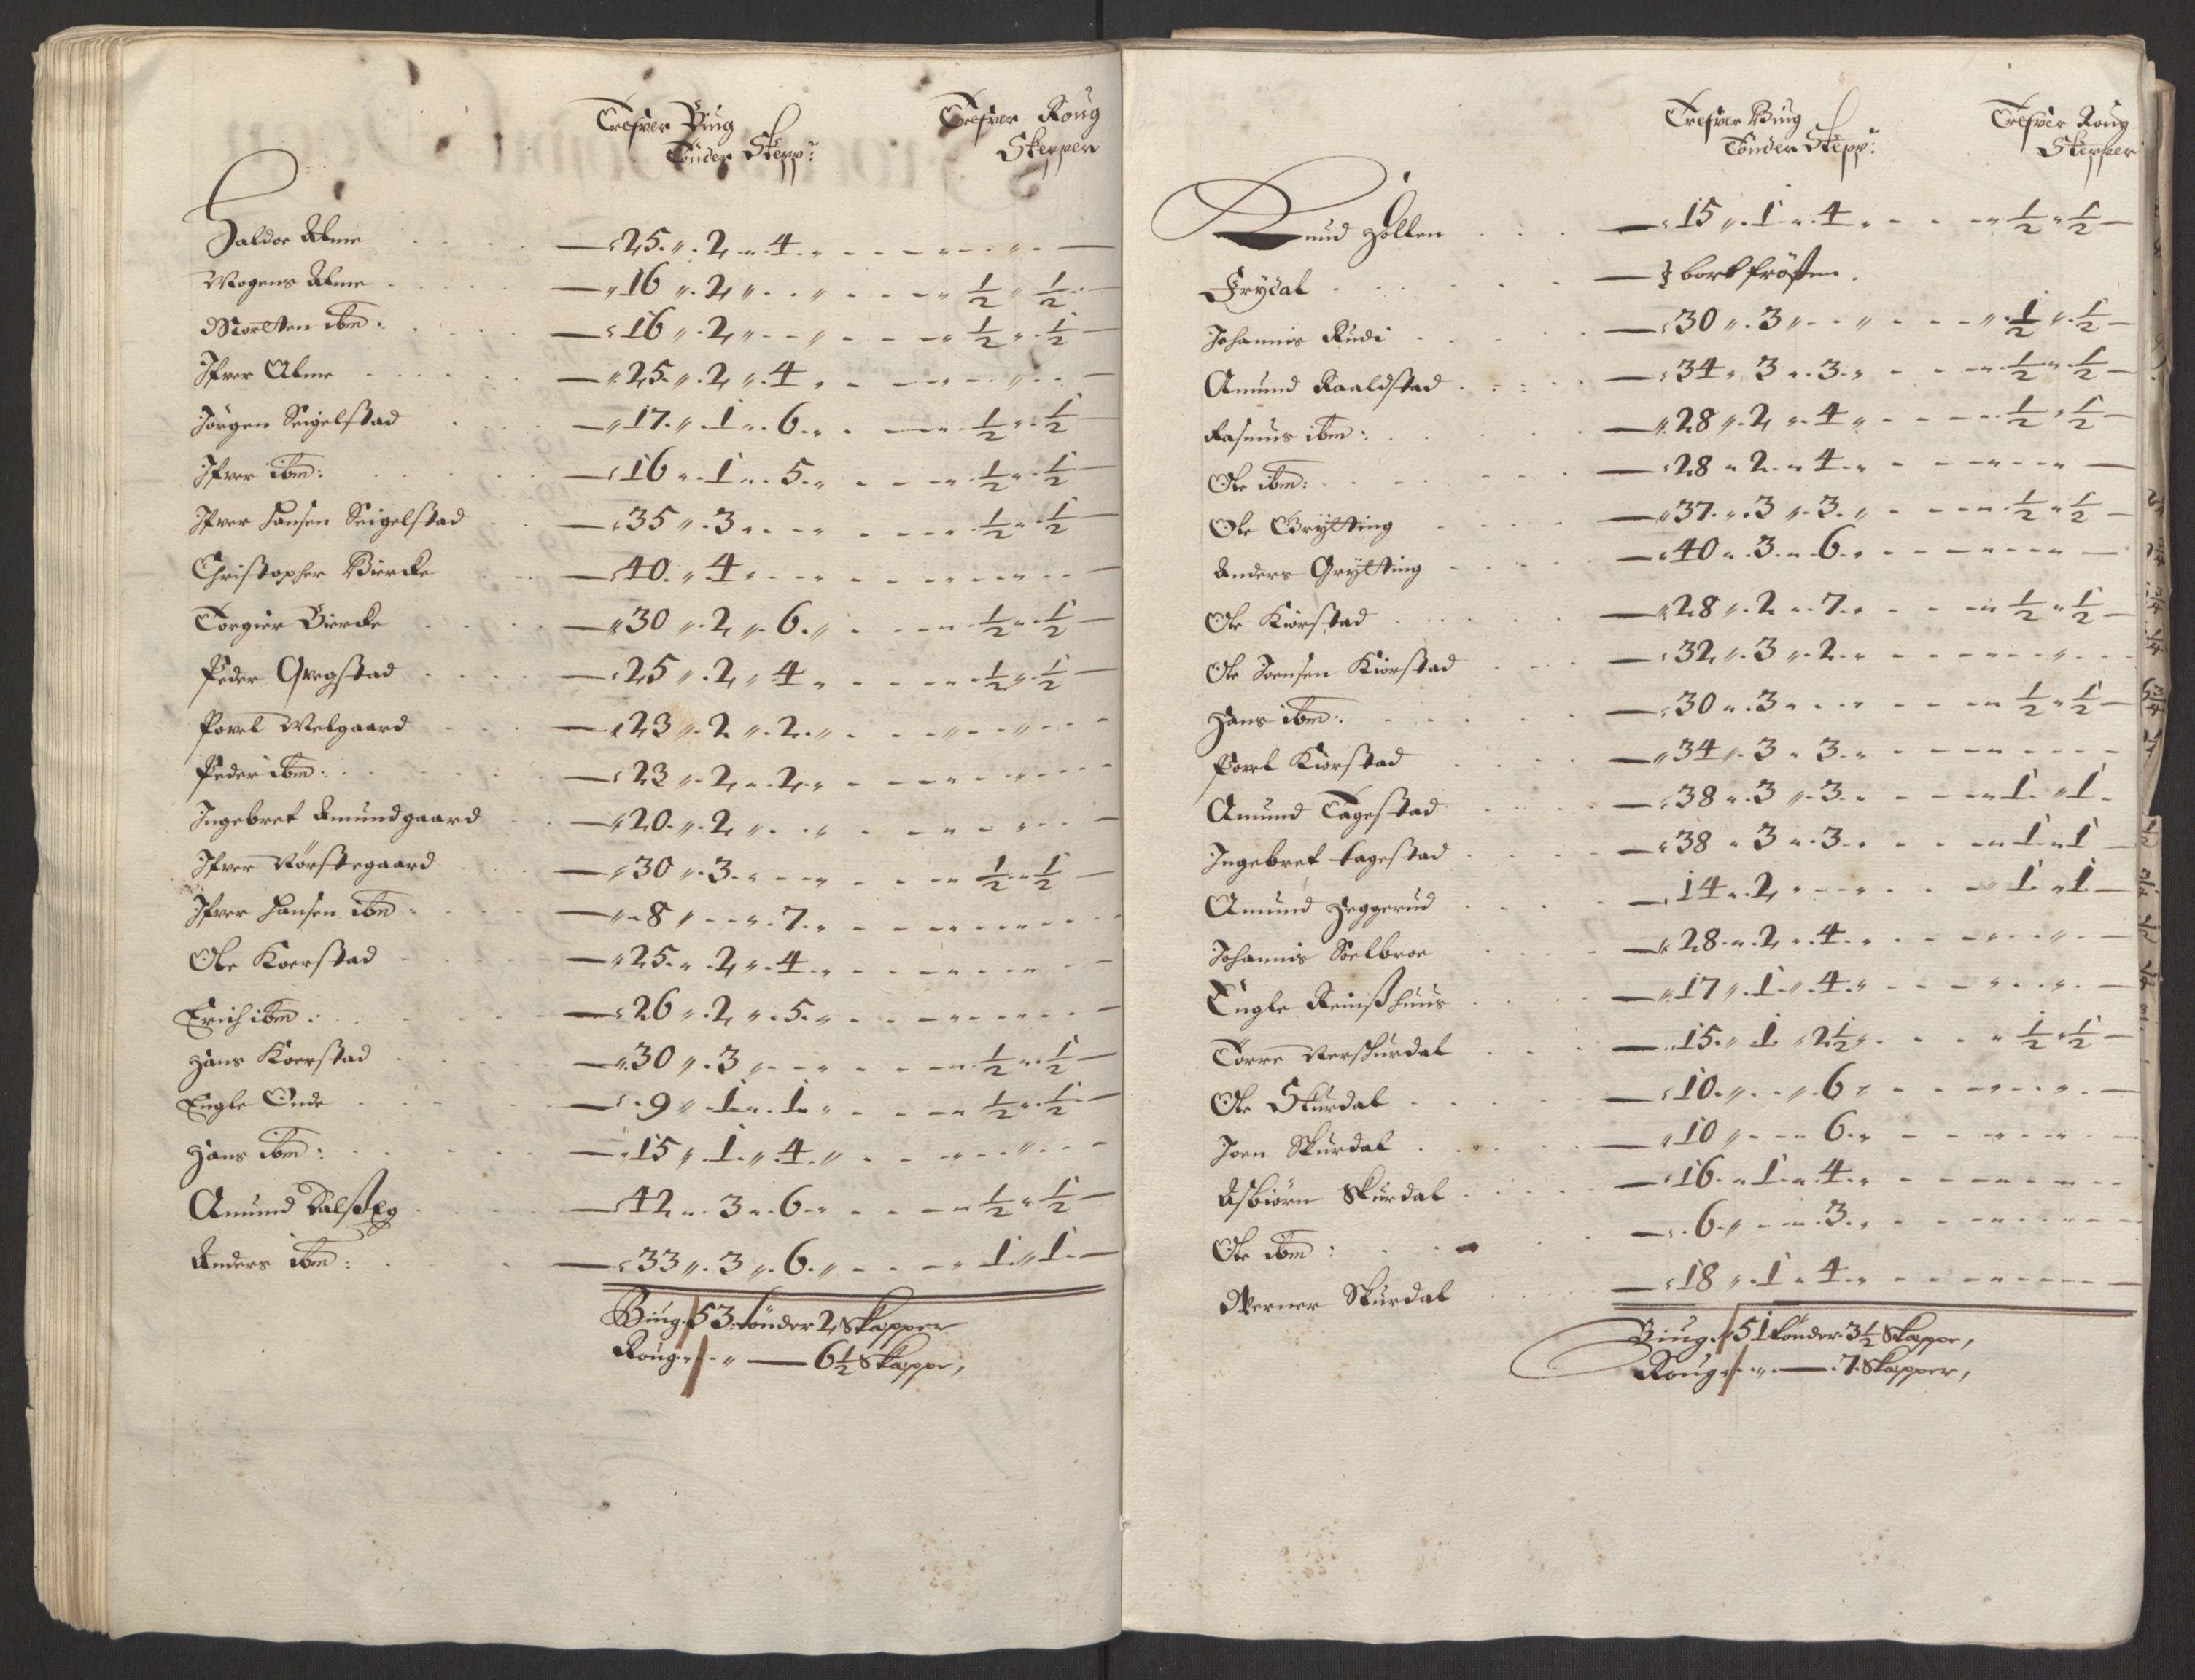 Trefver Biug
Tönder Skepp:
Trefver Roug
Skepper
Haldor Alme — 25 " 2 " 4 " - - -
Mogens Alme — 16 " 2 " - " - - - 1/2 " 1/2
Morthen ibm: — 16 " 2 " - - " - - 1/2 " 1/2
Ifver Alme — 25 " 2 " 4 " - - -
Jörgen Seigelstad — 17 " 1 " 6 " - — 1/2 " 1/2
Ifver ibm: — 16 " 1 " 5 " - - 1/2 " 1/2
Ifver Hansen Seigelstad — 35 " 3 " - - " - - 1/2 " 1/2
Christopher Biercke — 40 " 4 " - - -
Torgier Biercke — 30 " 2 " 6 " - - 1/2 " 1/2
Peder Qvegstad — 25 " 2 " 4 " - - 1/2 " 1/2
Povel Melgaard — 23 " 2 " 2 " - - -
Peder ibm: — 23 " 2 " 2 " - - -
Ingebret Amundgaard — 20 " 2 " - - -
Ifver Nörstegaard — 30 " 3 " - - " - - 1/2 " 1/2
Ifver Hansen ibm: — " 8 " - - " 7 " - - -
Ole Koerstad — 25 " 2 " 4 " - - -
Erich ibm: — 26 " 2 " 5 " - - -
Hans Koerstad — 30 " 3 " - - " - - 1/2 " 1/2
Engle Onde — 9 " 1 " 1 " - - 1/2 " 1/2
Hans ibm: — 15 " 1 " 4 " - - -
Amund Dalsseg — 42 " 3 " 6 " - - 1/2 " 1/2
Anders ibm: — 33 " 3 " 6 " - - - 1 " 1
Biug 53 tönder 2 Skepper
Roug " - " — 6 1/2 Skeppe,
Trefver Biug
Tönder Skepp:
Trefver Roug
Skepper
Knud Hollen — 15 " 1 " 4 " - - 1/2 " 1/2
Frydal — bortfrößen.
Johannis Rudi — 30 " 3 " - - " - - 1/2 " 1/2
Amund Raaldstad — 34 " 3 " 3 " - - 1/2 " 1/2
Rasmus ibm: — 28 " 2 " 4 " - - 1/2 " 1/2
Ole ibm: — 28 " 2 " 4 " - - -
Ole Grytting — 37 " 3 " 3 " - - 1/2 " 1/2
Anders Grytting — 40 " 3 " 6 " - - -
Ole Kiorstad — 28 " 2 " 7 " - - 1/2 " 1/2
Ole Joensen Kiorstad — 32 " 3 " 2 " - - -
Hans ibm: — 30 " 3 " - - " - - 1/2 " 1/2
Povel Kiorstad — 34 " 3 " 3 " - - -
Amund Tagestad — 38 " 3 " 3 " - - 1 " 1
Ingebret tagestad — 38 " 3 " 3 " - - 1 " 1
Amund Heggerud — 14 " 2 " - - " - - 1 " 1
Johannis Soelbroe — 28 " 2 " 4 " - - -
Engle Reinßhuus — 17 " 1 " 4 " - - -
Torre Nerskurdal — 15 " 1 " 2 1/2 " - - 1/2 " 1/2
Ole Skurdal — 10 " - - " 6 " - - -
Joen Skurdal — 10 " - - " 6 " - - -
Asbiörn Skurdal — 16 " 1 " 4 " - - -
Ole ibm: — 6 " - - " 3 " - - -
Werner Skurdal — 18 " 1 " 4 " - - -
Biug " 51 tönder 3 1/2 Skeppe,
Roug " - " — 7 Skepper,